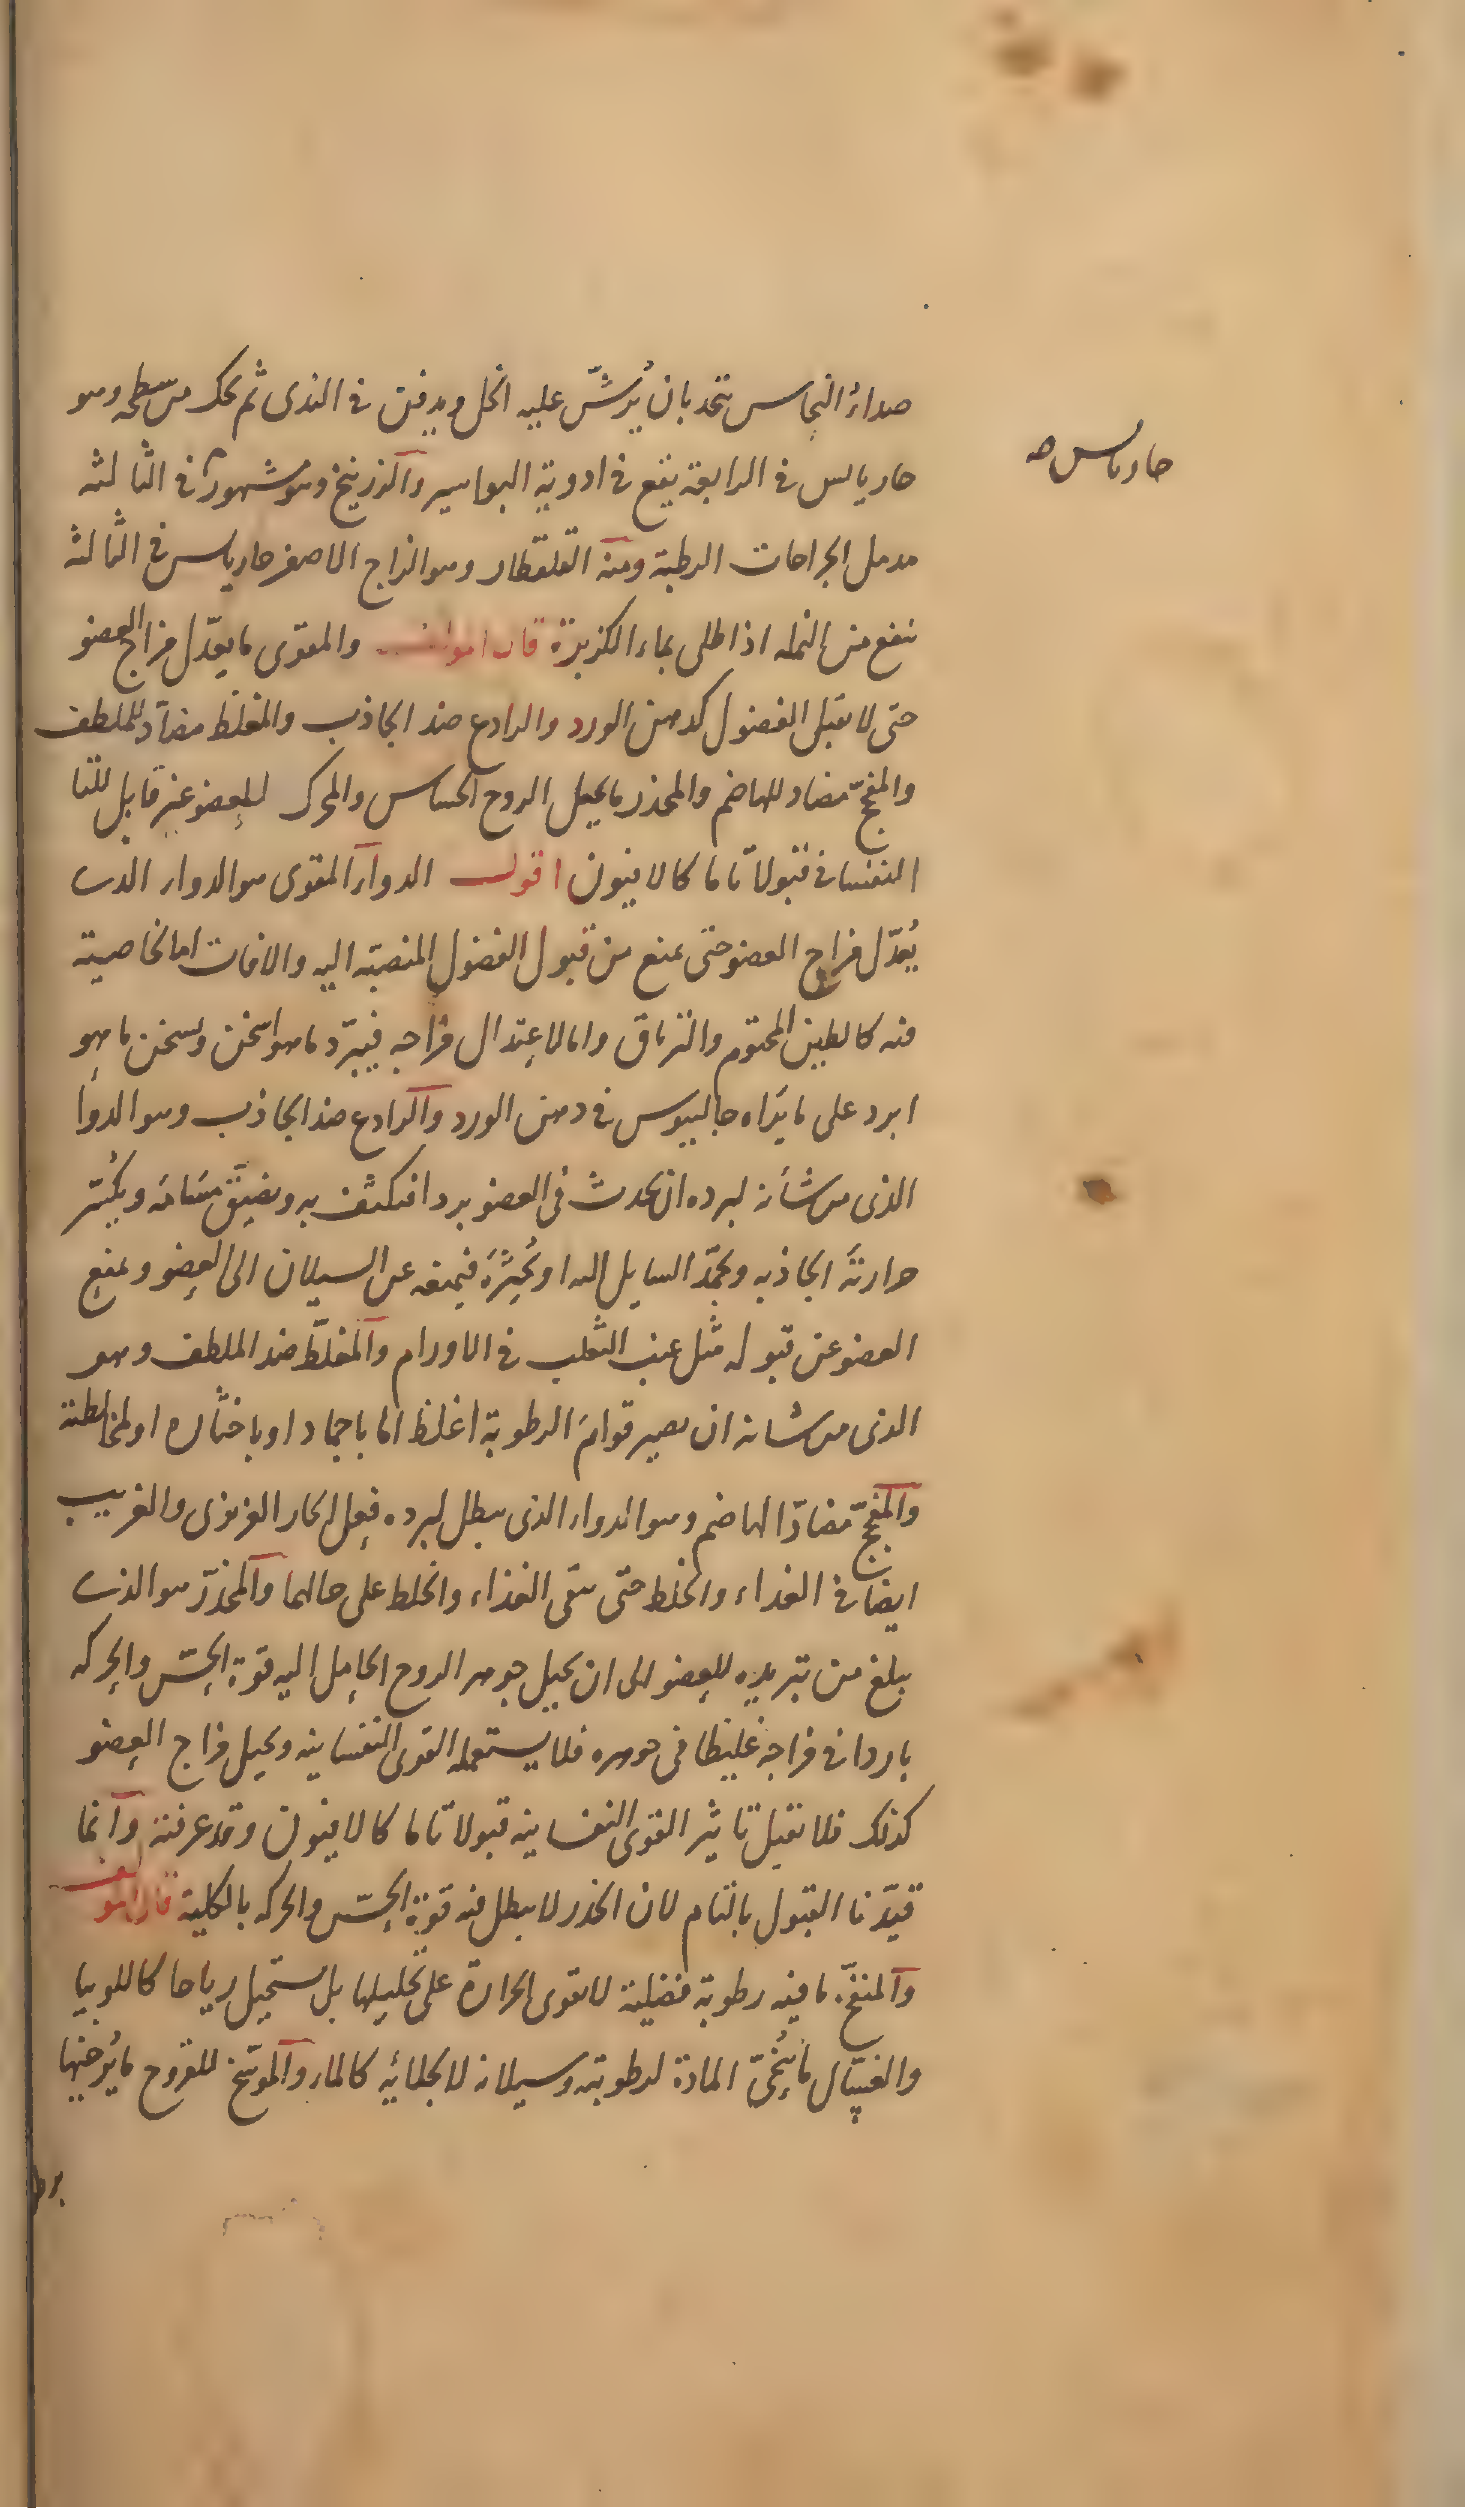 صداءُ النحاس يتخد بان يُرشّ عليه الخل ويدفن فى الندى ثم يحك من سطحه وهو
حار يابس فى الرابعة يقع فى ادوية البواسير والزرنيخ وهو مشهور فى الثالثه
حار يابس صح
مدمل الجراحات الرطبة ومنه القلقطار وهو الزاج الاصفر حار يابس فى الثالثة
ينفع من النمله اذا طلى بماء الكزبرة قال المولف والمقوى ما يعدّل مزاج العضو
حتى لا يقبل الفضول كدهن الورد والرادع ضد الجاذب والمغلظ مضآد للملطف
والمفجّج مضاد للهاضم والمخدر ما يجعل الروح الحساس والمحرك للعضو غير قابل للتا
النفسانى قبولا تاما كالافيون اقول الدواء المقوى هو الدواء الذى
يُعدّل مزاج العضو حتى يمنع من قبول الفضول المنصبّه اليه والافات اما لخاصية
فيه كالطين المختوم والترياق واما لاعتدال مزاجه فيبرّد ما هو اسخن ويسخن ما هو
ابرد على ما يَراه جالينوس فى دهن الورد والرادع ضد الجاذب وهو الدوأ
الذى من شأنه لبرده ان يحدث فى العضو بردا فيكثف به ويضيّق مسَامّه ويكْسَر
حرارتَه الجاذبه ويجمّد السايل اليه او يُخثِّرَه فيمنعه عن السيلان الى العضو ويمنع
العضو عن قبوله مثل عنب الثعلب فى الاورام والمغلّظ ضد الملطف وهو
الذى من شانه ان يصير قوامَ الرطوبة اغلظ اما باجماد او باخثاره او لمخالطته
والمفجّج مضادّ الهاضم وهو الدواء الذى يبطل لبرده فعل الحار الغريزى والغريب
ايضا فى الغداء والخلط حتى يبقى الغذاء والخلط على حالهما والمخدّر هو الذى
يبلغ من تبريده للعضو الى ان يحيل جوهر الروح الحامل اليه قوة الحِسّ والحركه
باردا فى مزاجه غليظا فى جوهره فلا يستعمله القوى النفسانيه ويحيل مزاج العضو
كذلك فلا يقبل تاثير القوى النفسانيه قبولا تاما كالافيون وقد عرفته وآنما
قيّدنا القبول بالتام لان الخدر لا يبطل فيه قوة الحِسّ والحركه بالكلية قال المولف
والمنفّخ ما فيه رطوبة فضلية لا يقوى الحرارة على تحليلها بل يستحيل رياحا كاللوبيا
والغسّال ما يُنحّى المادة لرطوبته وسيلانه لا بجلائه كالماء والموسّخ للقروح ما يُرخيها